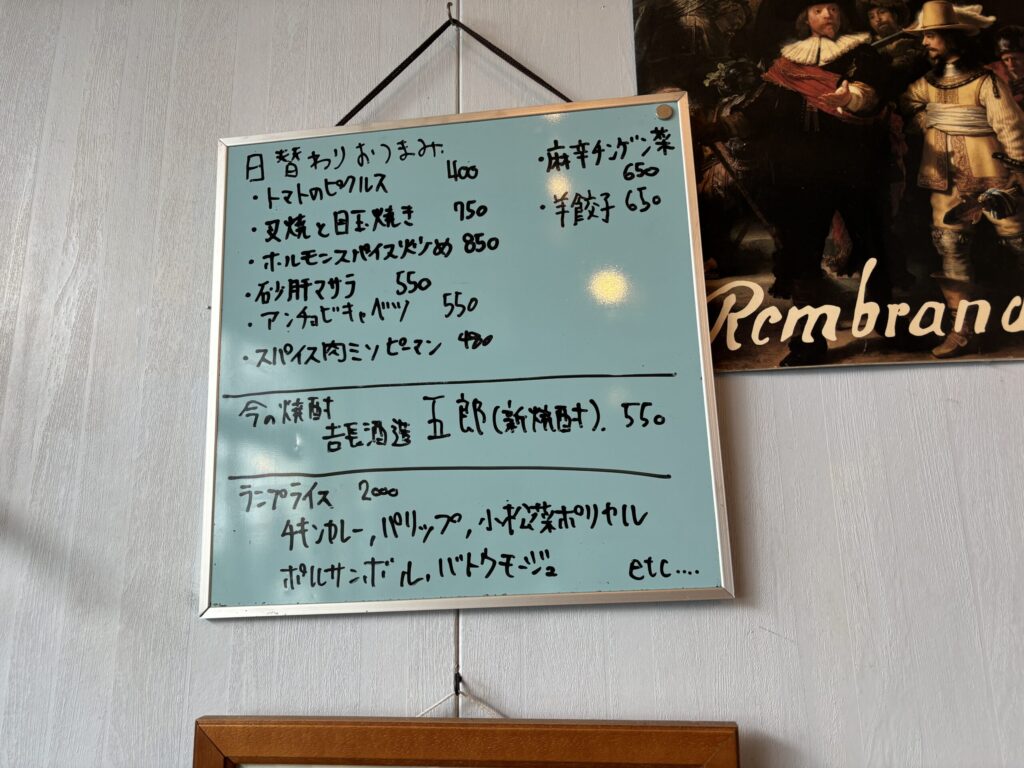 日替わりおつまみ
・トマトのピクルス 400
・叉焼と目玉焼き 750
・ホルモンスパイス炒め 850
・砂肝マサラ 550
・アンチョビキャベツ 550
・スパイス肉ミソピーマン 480
・麻辛チンゲン菜
650
・羊餃子 650
今の焼酎
吉長酒造 五郎(新焼酎). 550
ランプライス 2000
チキンカレー, パリップ, 小松菜ポリヤル
ポルサンボル, バトウモージュ etc....
Rembrand